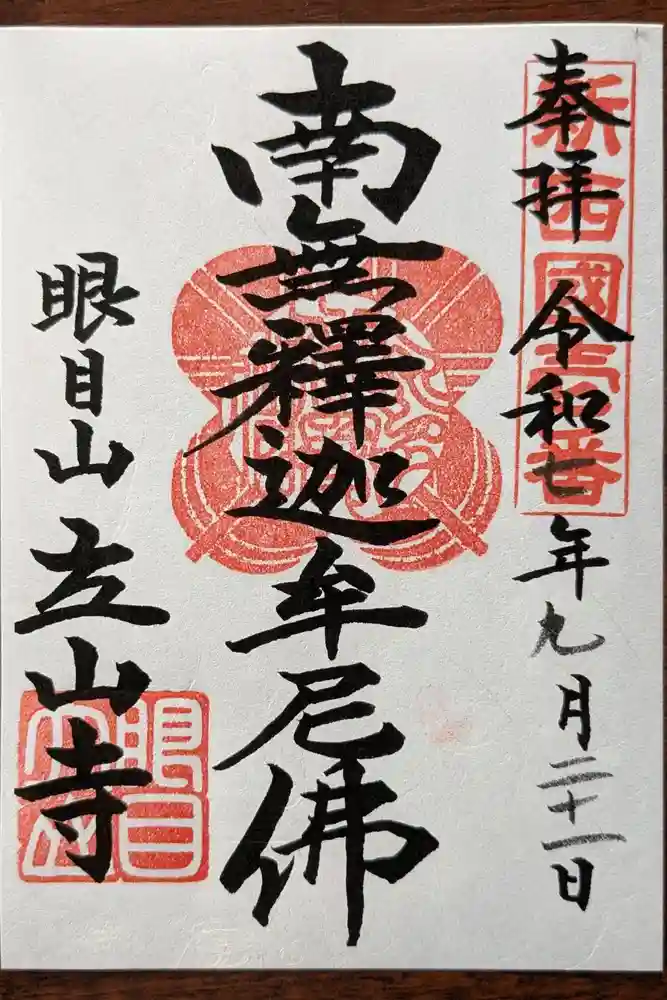 奉拝 令和七年九月二十一日
新西國壱番
南無釋迦牟尼佛
眼目山立山寺
眼目